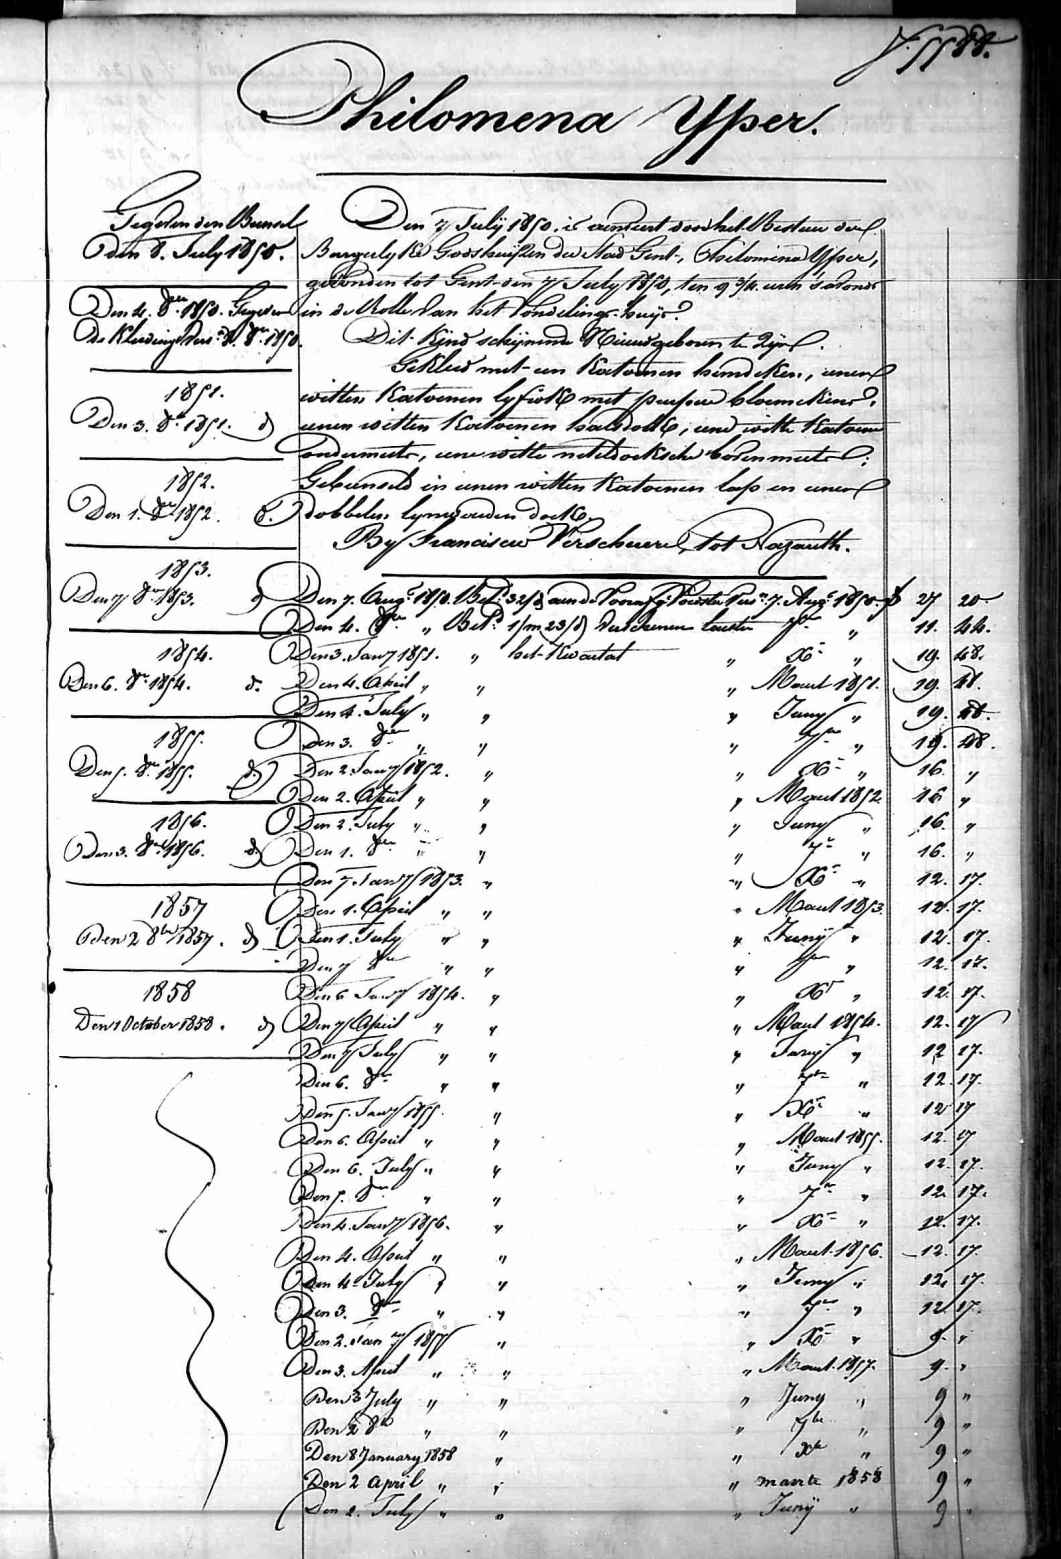 Philomena Yper.
Gegeven den Bunsel
den 8. July 1850.
Den 4. 8er 1850. Gegeven
de Kleeding Vers. 8er 1850.
1851.
Den 3. 8er 1851. d
1852.
Den 1. 8er 1852. d.
1853.
Den 7 8er 1853. d
1854.
Den 6. 8er 1854. d.
1855.
Den 5. 8er 1855. d
1856.
Den 3. 8er 1856. d.
1857
Den 2 8br 1857. d
1858
Den 1 October 1858. d
Den 7 July 1850. is aenveert door het Bestuer der
Burgerlyke Godshuyzen der Stad Gent, Philomena Yper,
gevonden tot Gent den 7 July 1850, ten 9 3/4 uren s'avonds
in de Rolle van het Vondelings-huys.
Dit Kind schijnende Nieuwgeboren te Zijn.
Gekleed met een Katoenen hemdeken, eenen
witten Katoenen lyfrok met purpere bloemekens,
eenen witten Katoenen halsdoek, eene witte Katoene
ondermuts, eene witte neteldoeksche bovenmuts:
Gebunseld in eenen witten Katoenen lap en eenen
dobbelen lynwaeden doek.
By Francisca Verschuere, tot Nazareth.
Den 7. Augt 1850. Betd 32/d aen de Voorsz. Voedster Vers. 7. Augt 1850. 27 20
Den 4. 8er " Betd 1/m 23/d verschenen lesten 7er " 11. 44.
Den 3. Jany 1851. " het Kwartael " Xr " 19. 48.
Den 4. April " " " Maert 1851. 19. 48.
Den 4. July " " " Juny " 19. 48.
Den 3. 8er " " " 7er " 19. 48.
Den 2. Jany 1852. " " Xr " 16. "
Den 2. April " " " Maert 1852. 16 "
Den 2. July " " " Juny " 16. "
Den 1. 8er " " " 7r " 16. "
Den 7. Jany 1853. " " Xr " 12. 17.
Den 1. April " " " Maert 1853. 12. 17.
Den 1. July " " " Juny " 12. 17.
Den 7 8er " " " 7er " 12. 17.
Den 6 Jany 1854. " " Xr " 12. 17.
Den 7 April " " " Maert 1854. 12. 17
Den 7 July " " " Juny " 12 17.
Den 6. 8er " " " 7er " 12. 17.
Den 5. Jany 1855. " " Xr " 12 17
Den 6. April " " " Maert 1855. 12. 17
Den 6. July " " " Juny " 12. 17.
Den 5. 8er " " " 7er " 12. 17.
Den 4. Jany 1856. " " Xr " 12. 17.
Den 4. April " " " Maert 1856. 12. 17.
Den 4 July " " " Juny " 12. 17.
Den 3. 8er " " " 7er " 12. 17.
Den 2. Jany 1857 " " Xr " 9. "
Den 3. April " " " Maert 1857. 9. "
Den 3 July " " " Juny " 9 "
Den 2 8br " " " 7br " 9 "
Den 8 January 1858 " " Xbr " 9 "
Den 2 April " " " maerte 1858 9 "
Den 2. July " " " Juny " 9 "